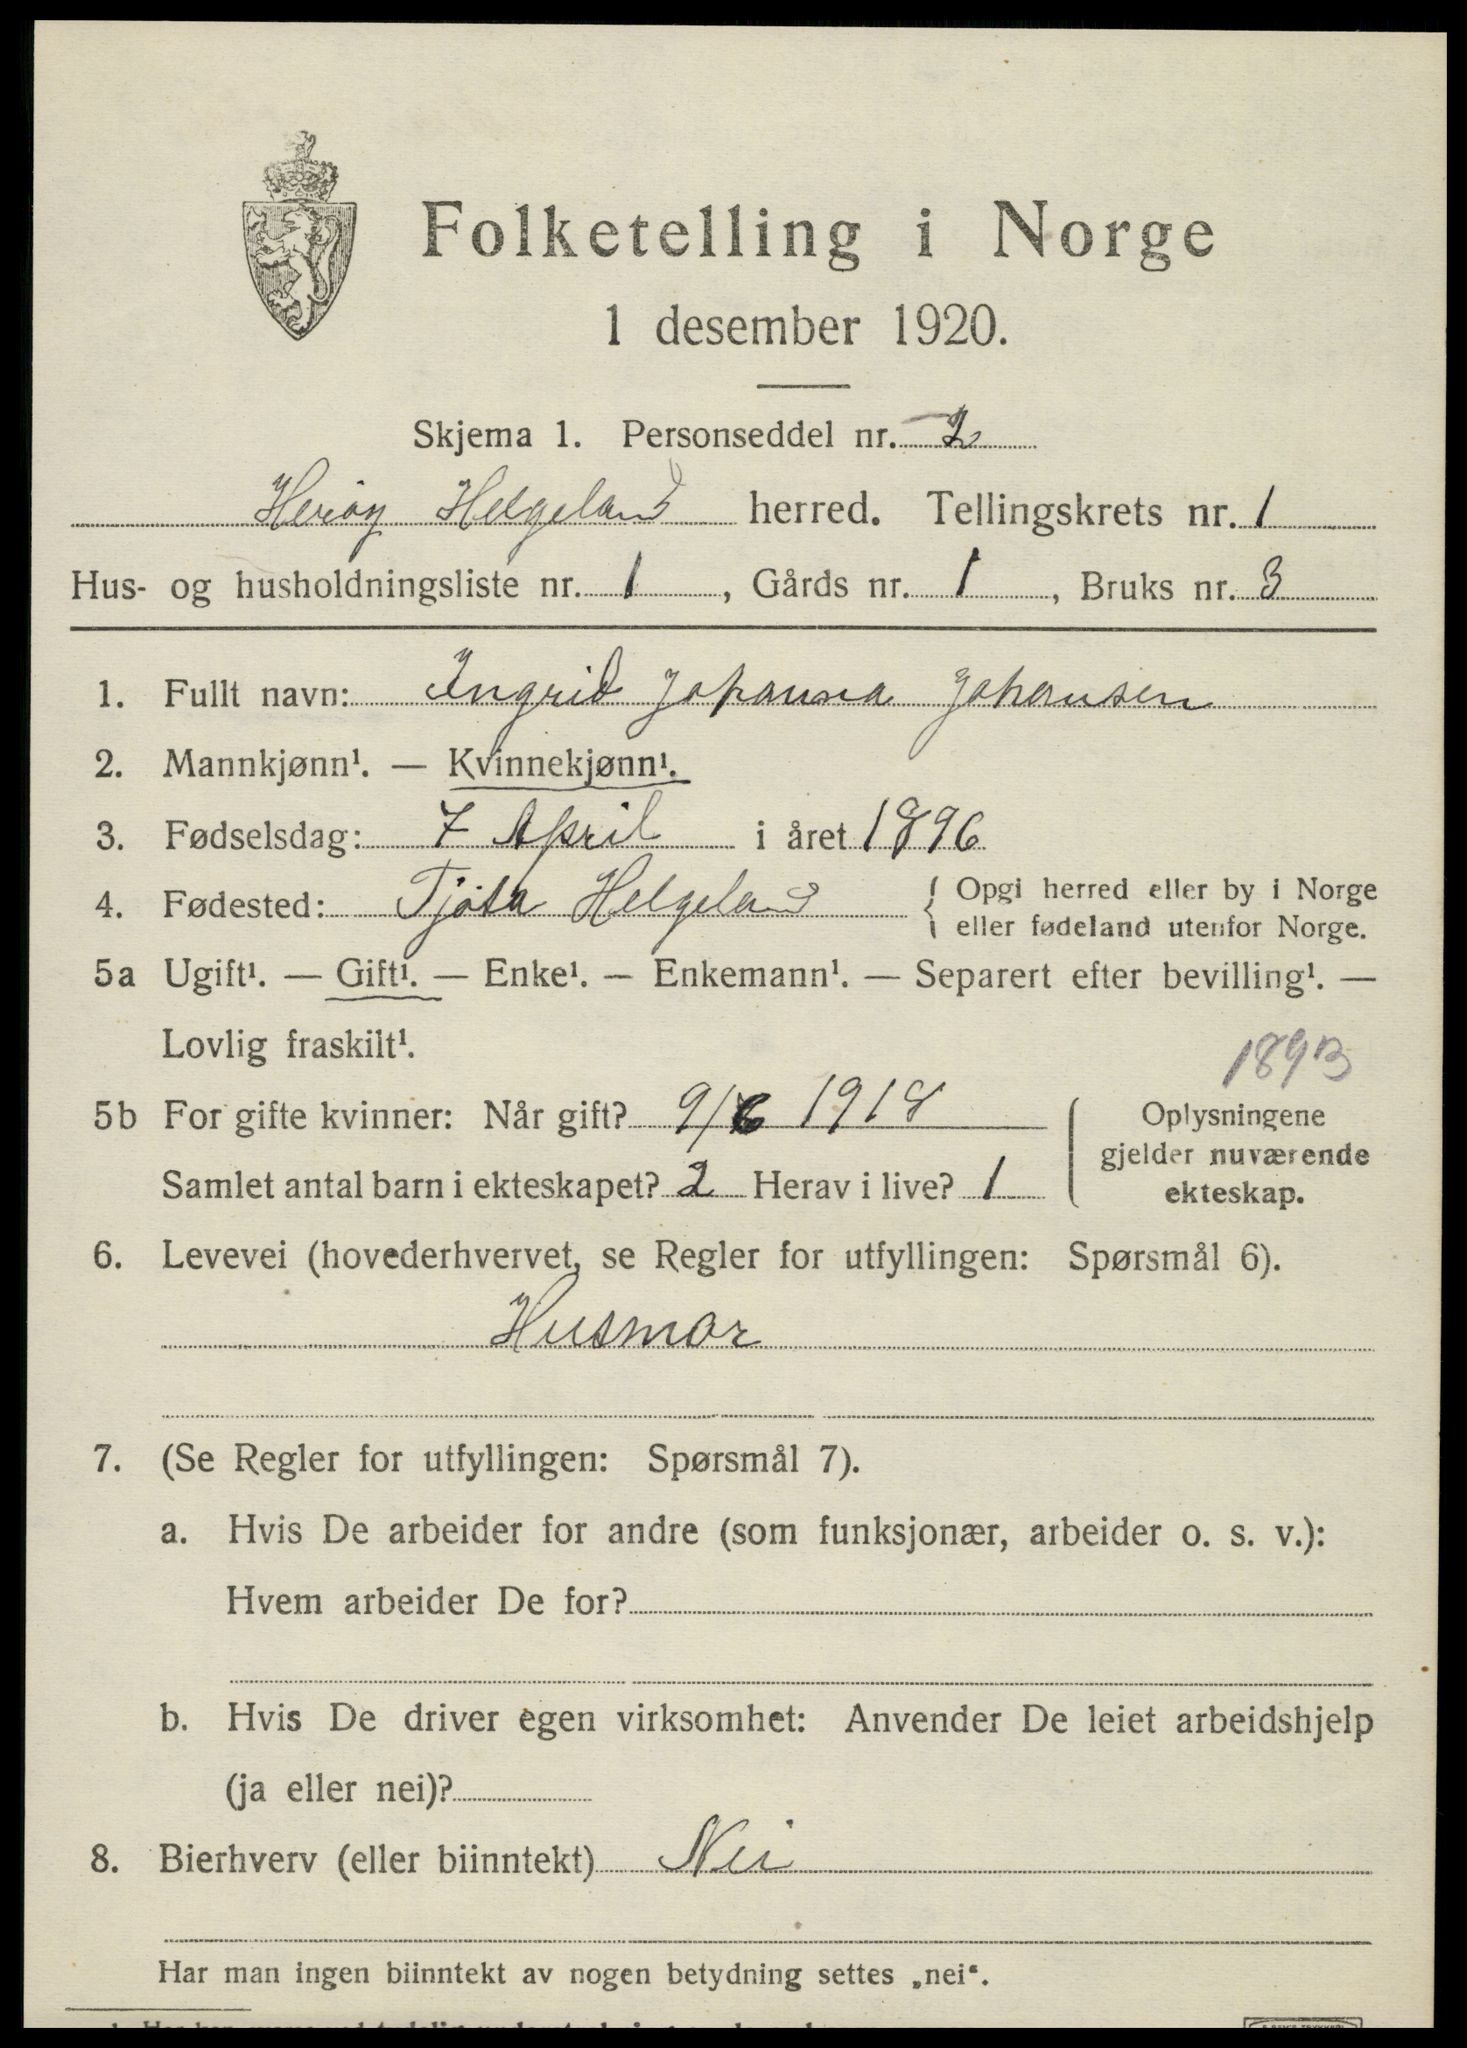 Folketelling i Norge
1 desember 1920.
Skjema 1. Personseddel nr. 2
Herøy Helgeland herred. Tellingskrets nr. 1
Hus- og husholdningsliste nr. 1, Gårds nr. 1, Bruks nr. 3
1. Fullt navn: Ingrid Johanna Johansen
2. Mannkjønn¹. — Kvinnekjønn¹.
3. Fødselsdag: 7 April i året 1896
4. Fødested: Tjøtta Helgeland { Opgi herred eller by i Norge
eller fødeland utenfor Norge.
5a Ugift¹. — Gift¹. — Enke¹. — Enkemann¹. — Separert efter bevilling¹. —
Lovlig fraskilt¹.
5b For gifte kvinner: Når gift? 9/6 1918
Samlet antal barn i ekteskapet? 2 Herav i live? 1
Oplysningene
gjelder nuværende
ekteskap.
6. Levevei (hovederhvervet, se Regler for utfyllingen: Spørsmål 6).
Husmor
7. (Se Regler for utfyllingen: Spørsmål 7).
a. Hvis De arbeider for andre (som funksjonær, arbeider o. s. v.):
Hvem arbeider De for?
b. Hvis De driver egen virksomhet: Anvender De leiet arbeidshjelp
(ja eller nei)?
8. Bierhverv (eller biinntekt) Nei
Har man ingen biinntekt av nogen betydning settes „nei“.